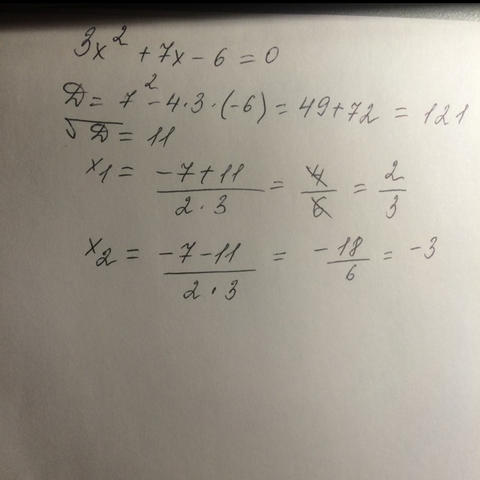 3x² + 7x - 6 = 0
D = 7² - 4·3·(-6) = 49 + 72 = 121
√D = 11
x₁ = (-7 + 11)/(2·3) = 4/6 = 2/3
x₂ = (-7 - 11)/(2·3) = -18/6 = -3